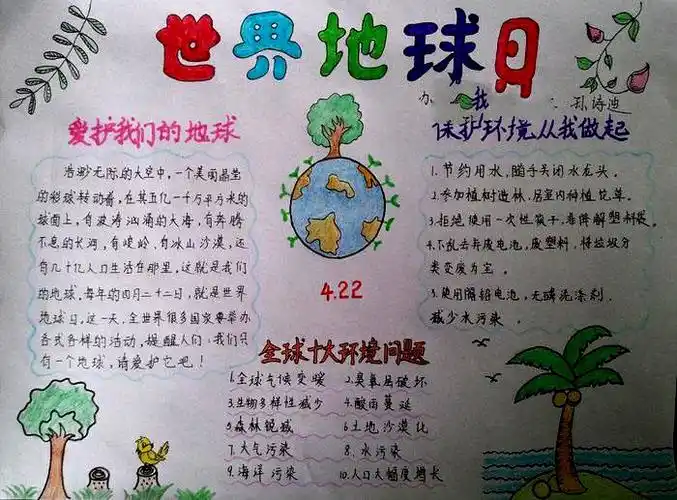 世界地球日
爱护我们的地球
浩渺无际的太空中,一个美丽晶莹
的彩球转动着,在其五亿一千万平方米的
球面上,有波涛汹涌的大海,有奔腾
不息的长河,有峻岭,有冰山沙漠,还
有几十亿人口生活在那里,这就是我们
的地球,每年的四月二十二日,就是世界
地球日,这一天,全世界很多国家要举办
各式各样的活动,提醒人们:我们只
有一个地球,请爱护它吧!
4.22
办
我
孙诗迪
保护环境从我做起
1.节约用水,随手关闭水龙头。
2.参加植树造林,居室内种植花草。
3.拒绝使用一次性筷子,难降解塑料袋。
4.不乱丢弃废电池,废塑料,将垃圾分
类变废为宝。
5.使用隔铅电池,无磷洗涤剂.
减少水污染。
全球十大环境问题
1.全球气候变暖 2.臭氧层破坏
3.生物多样性减少 4.酸雨蔓延
5.森林锐减 6.土地沙漠化
7.大气污染 8.水污染
9.海洋污染 10.人口大幅度增长